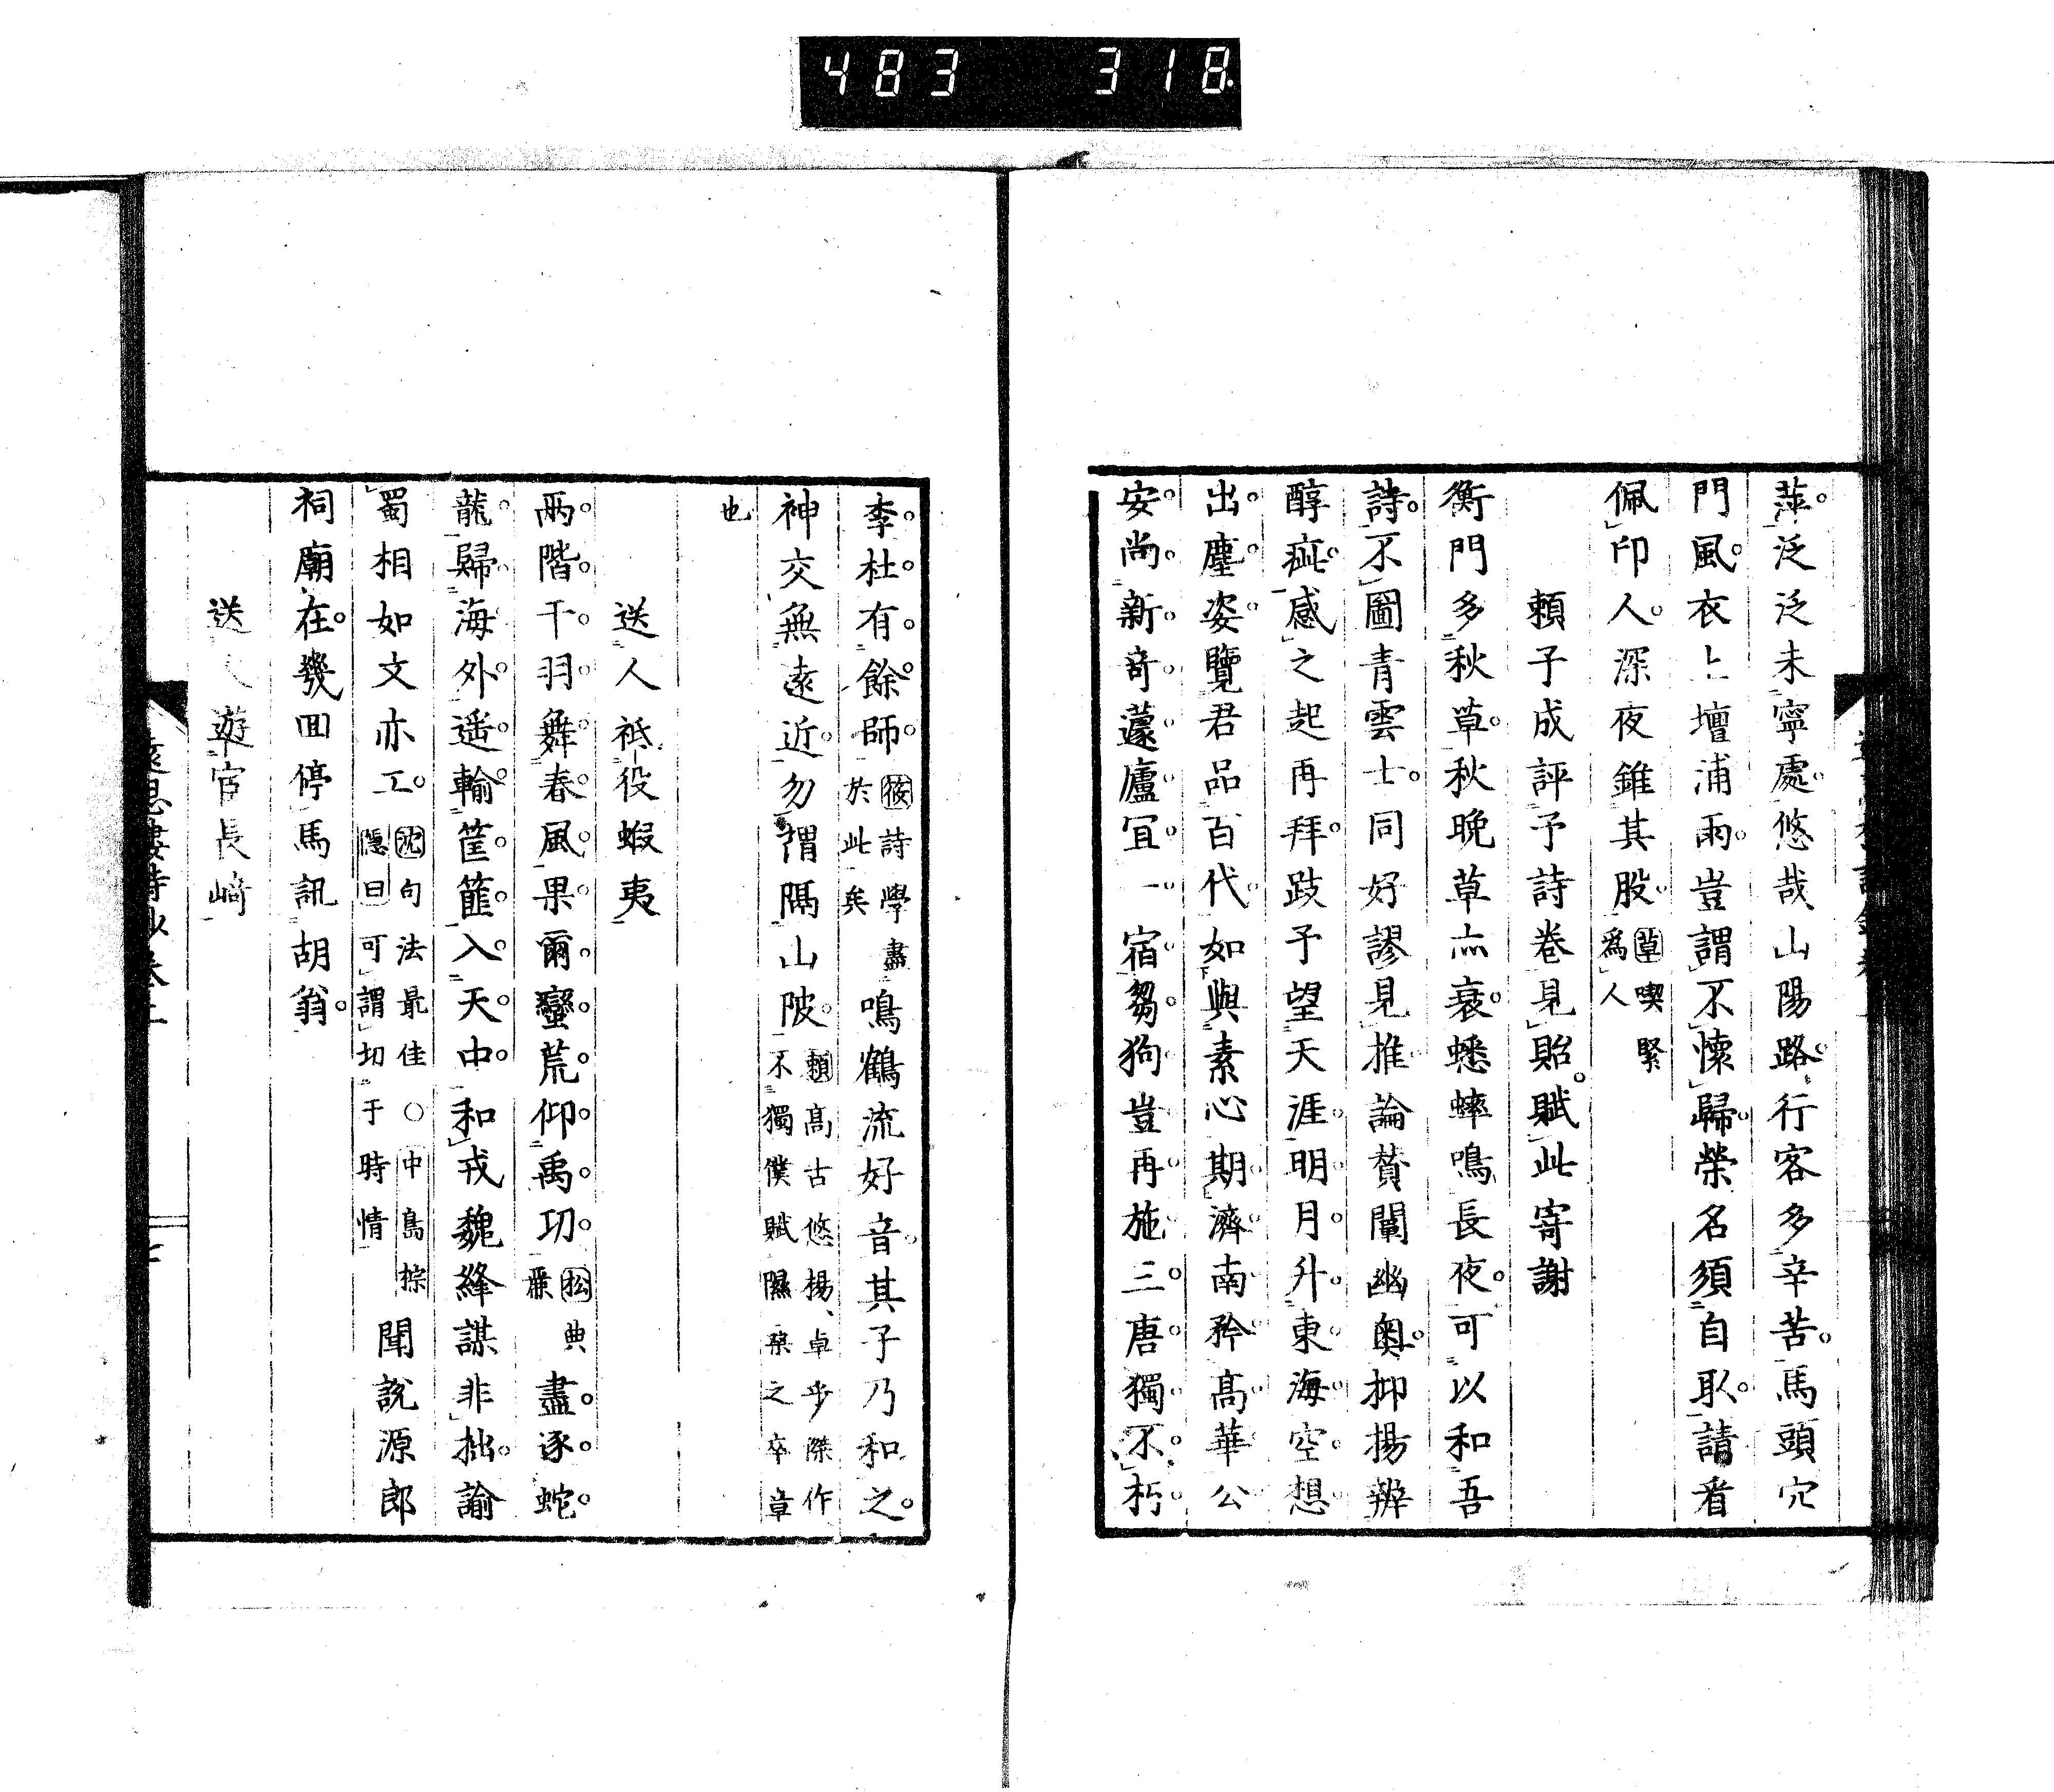 483 318
萍泛泛未寧處悠哉山陽路行客多辛苦馬頭穴
門風衣上壇浦雨豈謂不懷歸榮名須自取請看
佩印人深夜錐其股 草喫緊
爲人
賴子成評予詩卷見貽賦此寄謝
衡門多秋草秋晚草亦衰蟋蟀鳴長夜可以和吾
詩不圖青雲士同好謬見推論賛闡幽奧抑揚辨
醇疵感之起再拜跂予望天涯明月升東海空想
出塵姿覽君品百代如與素心期濟南矜高華公
安尚新奇蘧廬宜一宿芻狗豈再施三唐獨不朽
李杜有餘師 筱詩學盡
於此矣 鳴鶴流好音其子乃和之
神交無遠近勿謂隔山陂 賴高古悠揚卓步傑作
不獨僕賦隰桒之卒章
也
送人祗役蝦夷
兩階干羽舞春風果爾蠻荒仰禹功 松典
雅 盡逐蛇
龍歸海外遥輸筐篚入天中和戎魏絳謀非拙諭
蜀相如文亦工 沈句法最佳○中島棕
隱曰可謂切于時情 聞説源郎
祠廟在幾回停馬訊胡翁
送人遊宦長崎
遠思樓詩鈔卷上 七